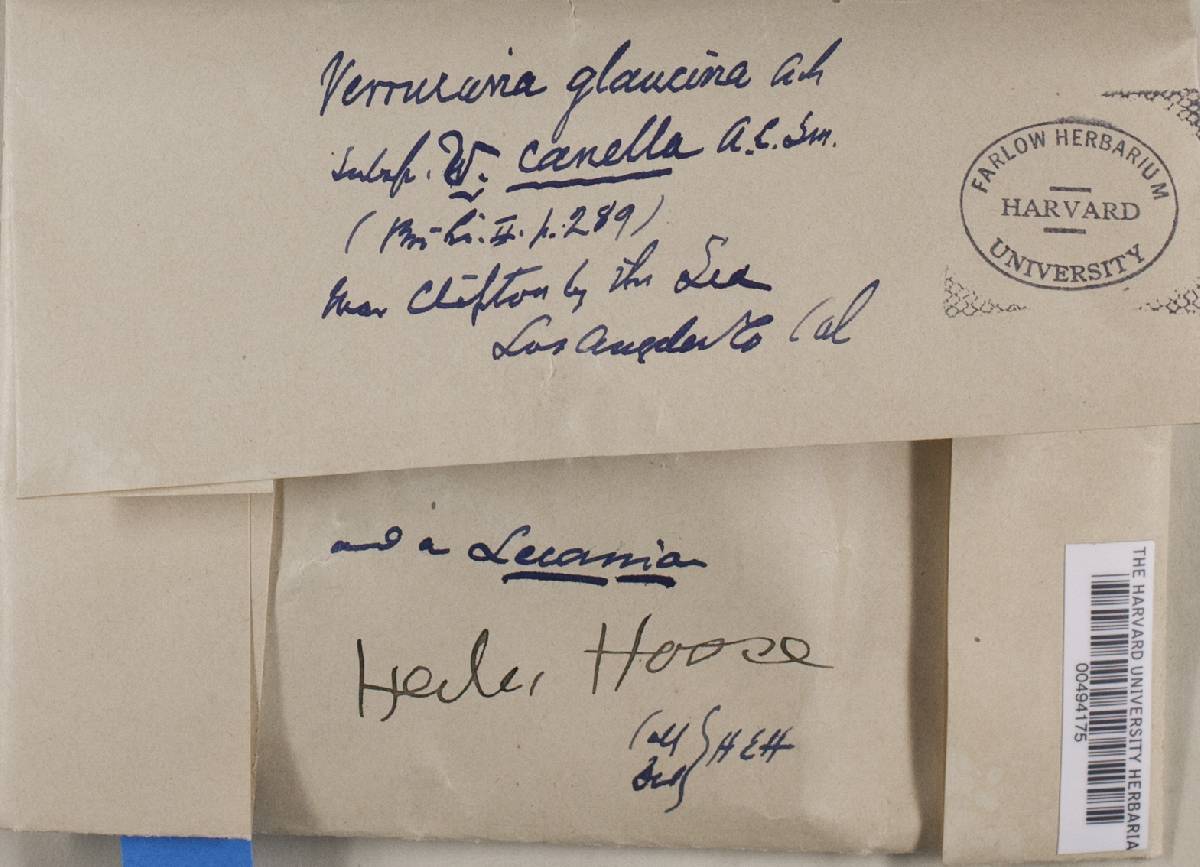 Verrucaria glaucina Ach
Subsp. V. canella A.L.Sm.
( Br. Li. II. p. 289)
Near Clifton by the Sea
Los Angeles Co Cal
FARLOW HERBARIUM
HARVARD
UNIVERSITY
and a Lecania
Hoose
Coll
HEH
THE HARVARD UNIVERSITY HERBARIA
00494175